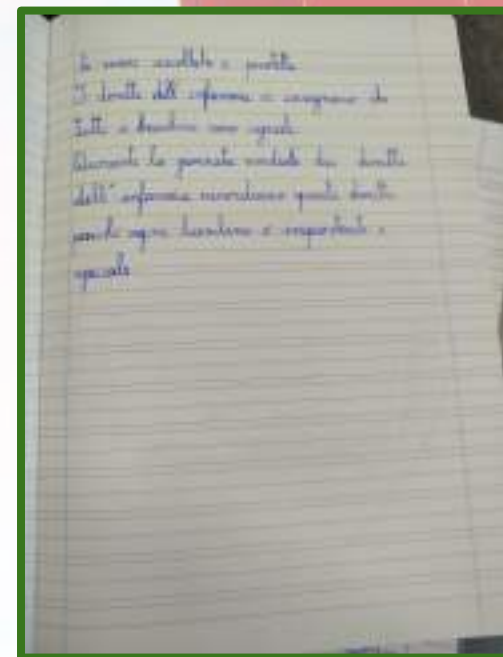 essere ascoltato e protetto
I diritti dell'infanzia ci insegnano che
Tutti i bambini sono uguali
Durante la giornata mondiale dei diritti
dell'infanzia ricordiamo questi diritti
perché ogni bambino è importante e
speciale